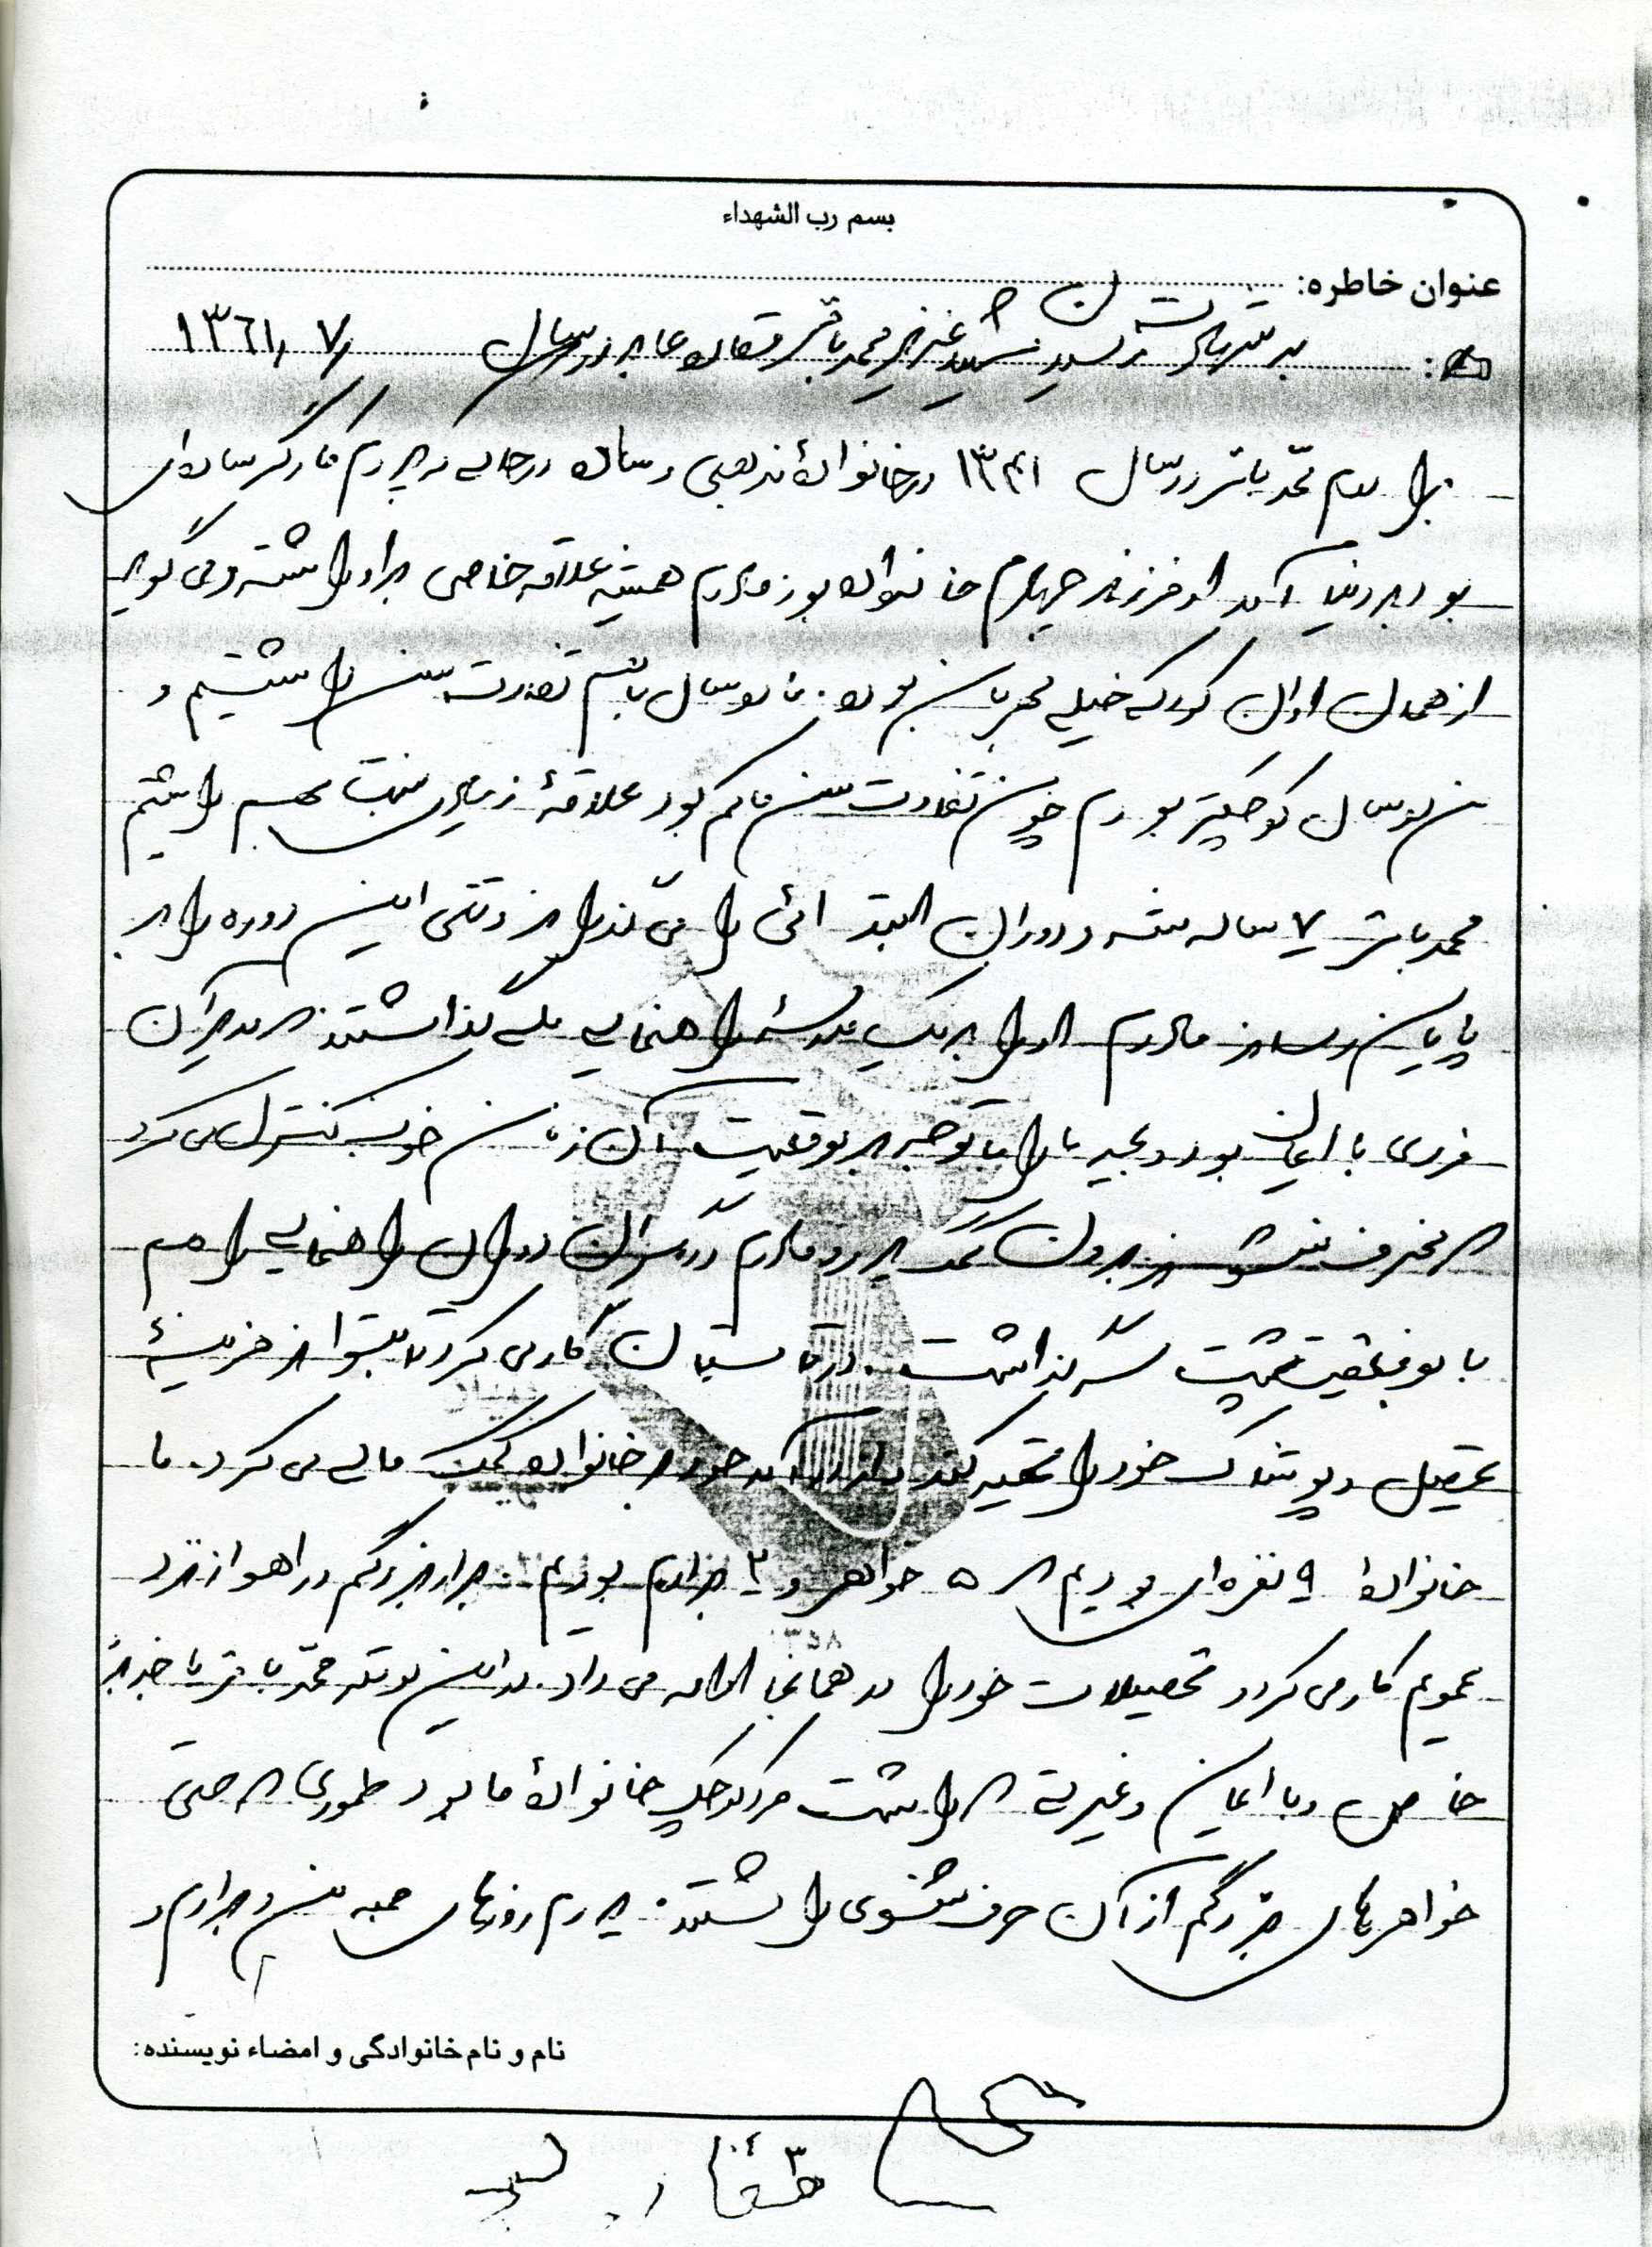 بسم رب الشهداء
عنوان خاطره:
به شهادت رسیدن شهید عزیز محمد باقر در سال ۱۳۶۱/۷/
برادرم محمد باقر در سال ۱۳۴۱ در خانوادهٔ مذهبی و ساده در حالی که پدرم کارگر ساده‌ای
بود به دنیا آمد او فرزند چهارم خانواده بود مادرم همیشه علاقه خاصی به او داشته و می گوید
از همان اوان کودکی خیلی مهربان بود. ما دو سال با هم تفاوت سن داشتیم و
من دو سال کوچکتر بودم چون تفاوت سن ما کم بود علاقهٔ زیادی نسبت بهم داشتیم
محمد باقر ۷ ساله شد و دوران ابتدائی را می گذراند وقتی این دوره را به
پایان رساند مادرم او را به یک مدرسهٔ راهنمایی ملی گذاشتند که مدیر آن
فردی با ایمان بود و بچه ها را با توجه به موقعیت آن زمان خوب کنترل می کرد
که منحرف نشوند بدون کمک پدر و مادرم در درسها دوران راهنمایی را هم
با موفقیت پشت سر گذاشت. در تابستان کار می کرد تا بتواند هزینهٔ
تحصیل و پوشاک خود را تهیه کند و از درآمد خود به خانواده کمک مالی می کرد. ما
خانوادهٔ ۹ نفره ای بودیم که ۵ خواهر و ۲ برادر بودیم. برادر بزرگم در اهواز نزد
عمویم کار می کرد و تحصیلات خود را در همانجا ادامه می داد. بنابراین محمد باقر با جذبهٔ
خاص و با ایمان و غیرتی که داشت مرد کوچک خانوادهٔ ما بود طوری که حتی
خواهرهای بزرگم از آن حرف شنوی داشتند. پدرم روزهای جمعه من و برادرم و
نام و نام خانوادگی و امضاء نویسنده: